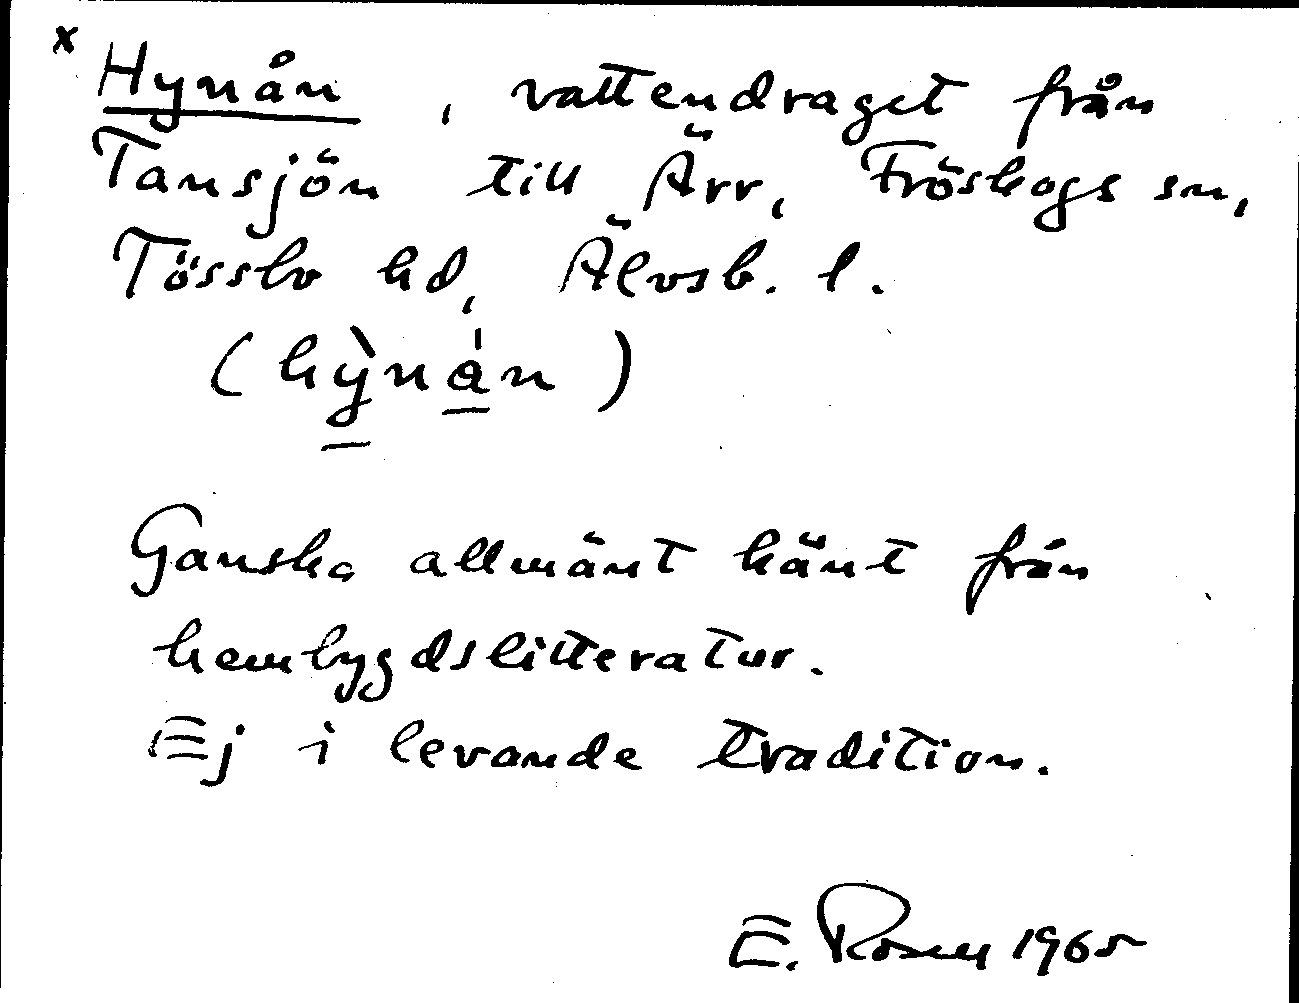 x Hynån, vattendraget från
Tansjön till Ärr, Fröskogs sn,
Tössbo hd, Älvsb. l.
(hỳnȧn)
Ganska allmänt känt från
hembygdslitteratur.
Ej i levande tradition.
E. Rosell 1965